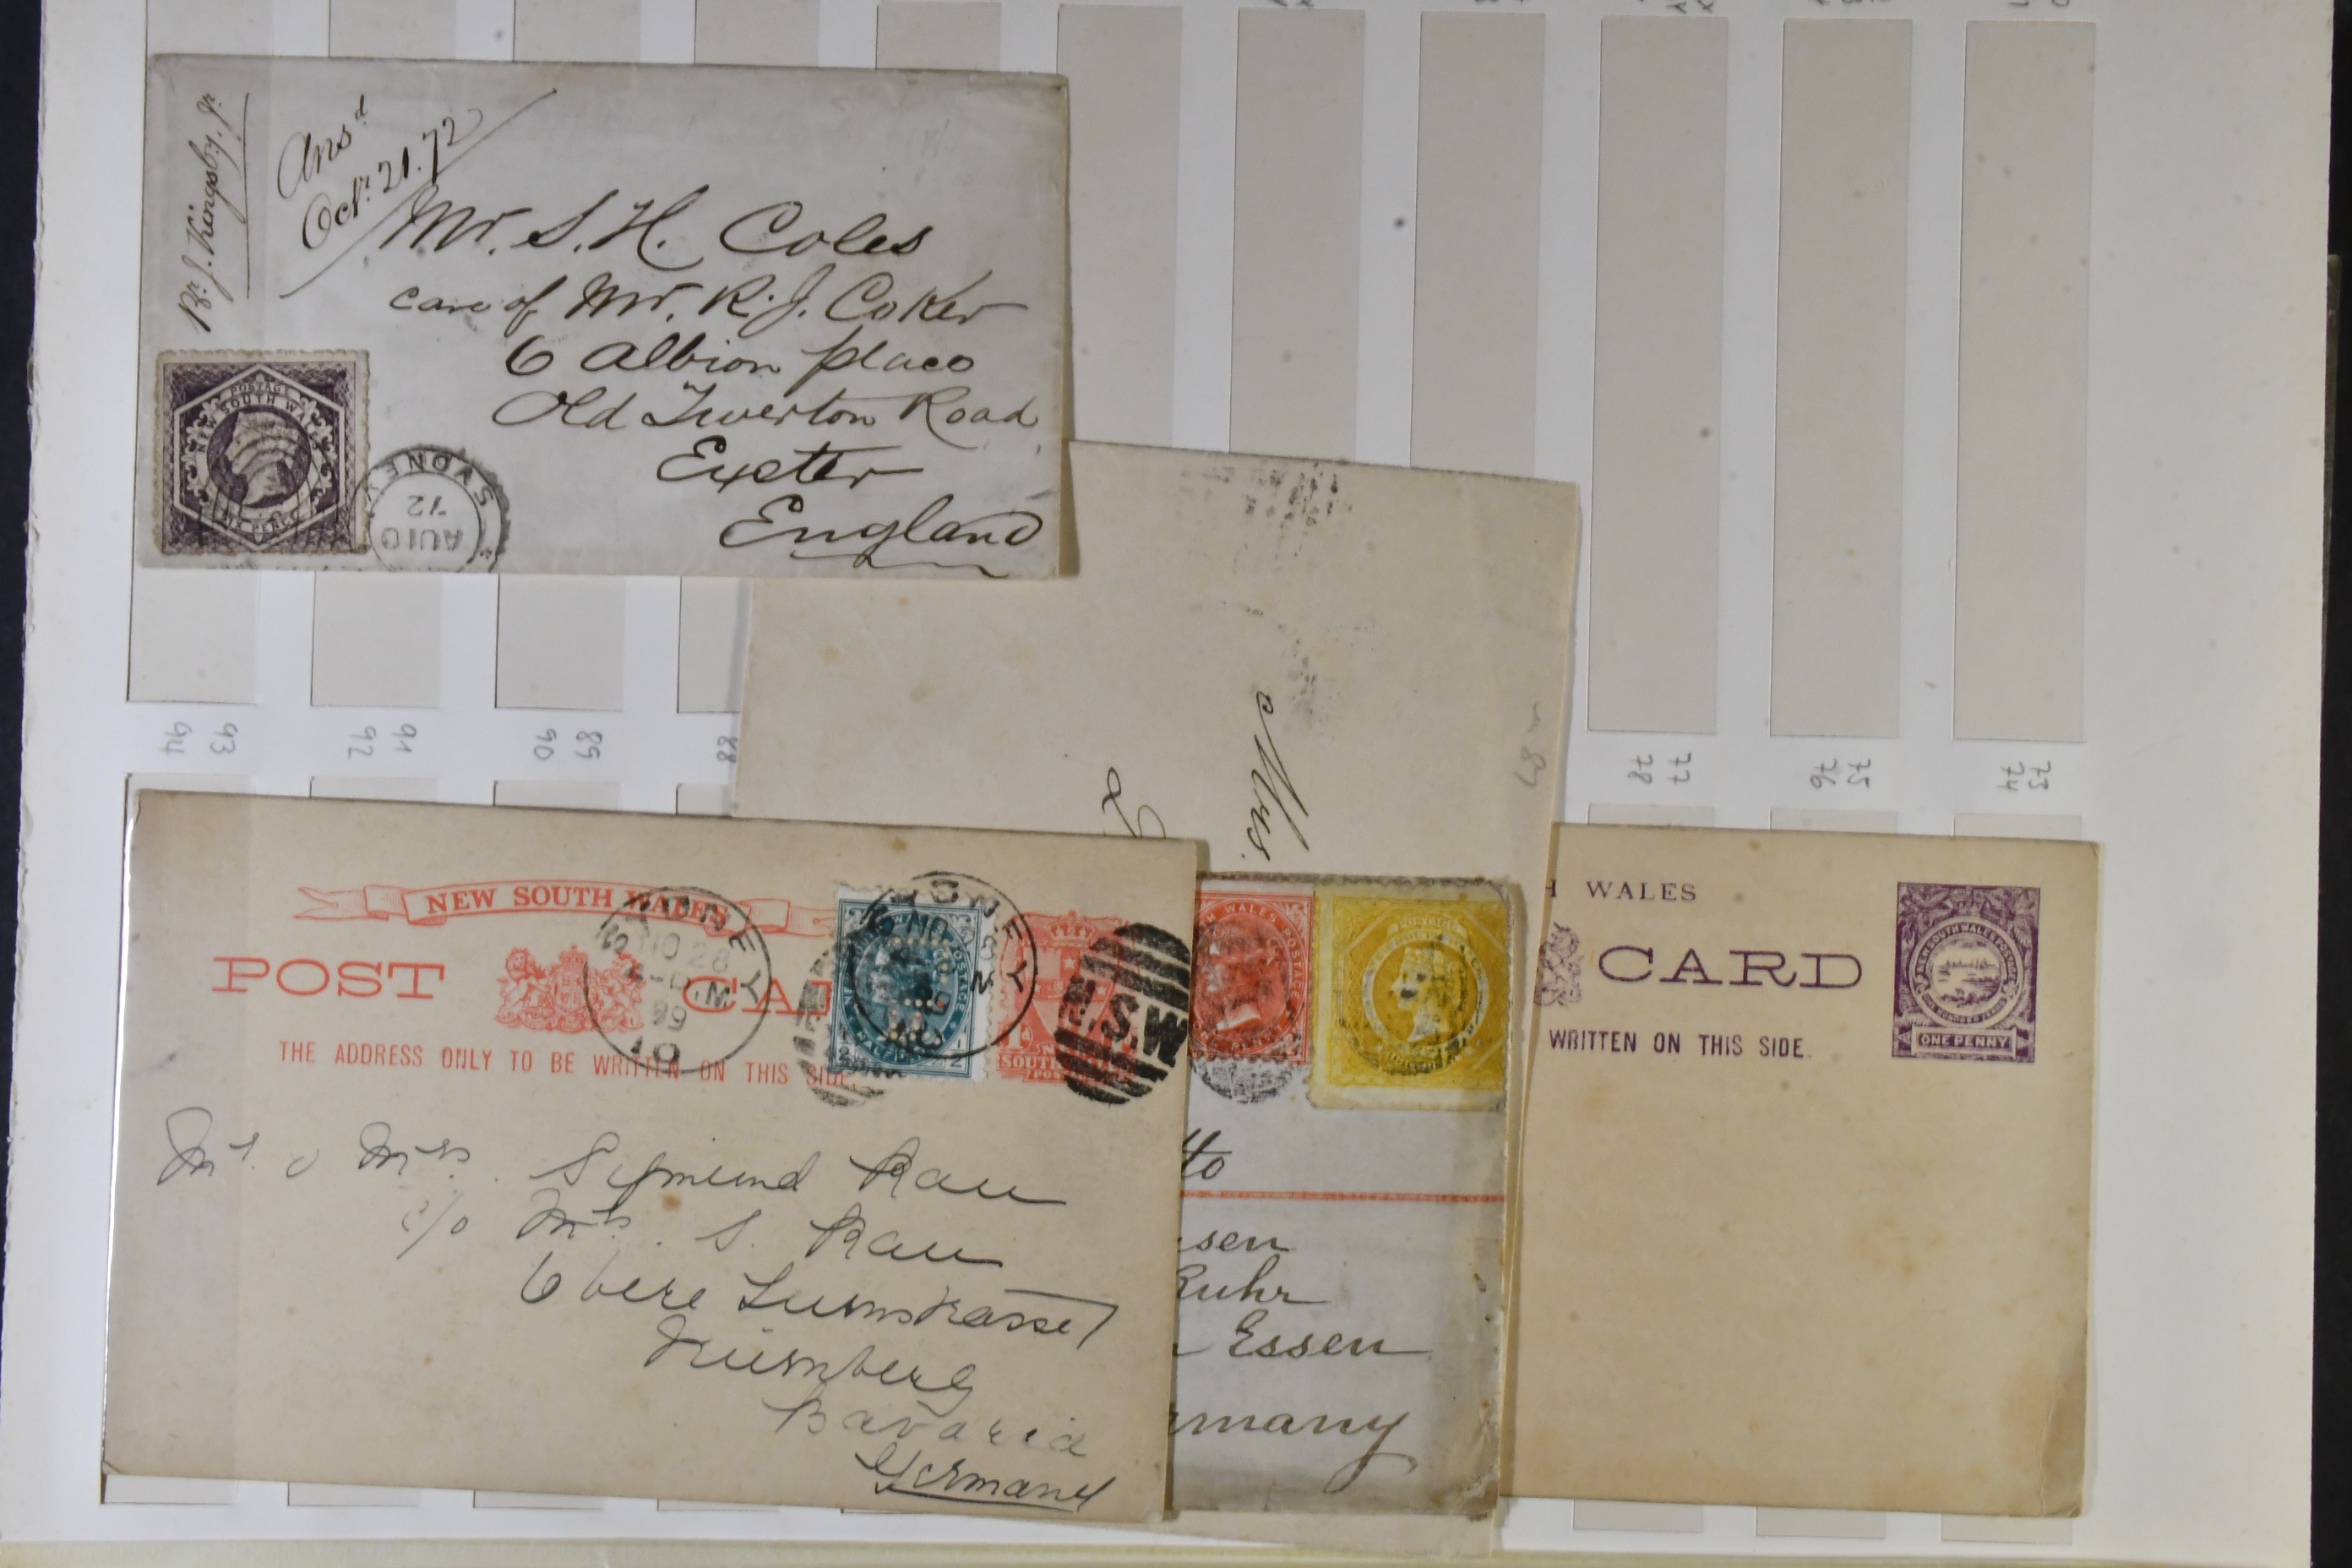 Ansd
Octr. 21. 72
Mr. S. H. Coles
care of Mr. R. J. Coker
6 Albion place
Old Tiverton Road
Exeter
England
POSTAGE
NEW SOUTH WALES
SIX PENCE
SYDNEY
AU 10
72
Mrs.
94 93
92 91
90 89
88
78 77
76 75
74 73
NEW SOUTH WALES
POST CA
THE ADDRESS ONLY TO BE WRITTEN ON THIS SIDE.
SYDNEY
NO 28
10
N.S.W
SOUTH
Mr. & Mrs. Sigmund Rau
c/o Mrs. S. Rau
Obere Turnstrasse 7
Nürnberg
Bavaria
Germany
H WALES POSTAGE
tto
sen
Ruhr
Essen
rmany
H WALES
CARD
WRITTEN ON THIS SIDE.
ONE PENNY